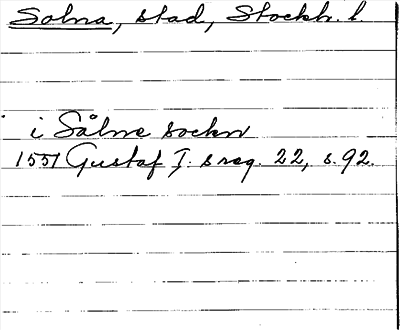 Solna, stad, Stockh. l.
i Sålne sockn
1551 Gustaf I:s reg. 22, s. 92.